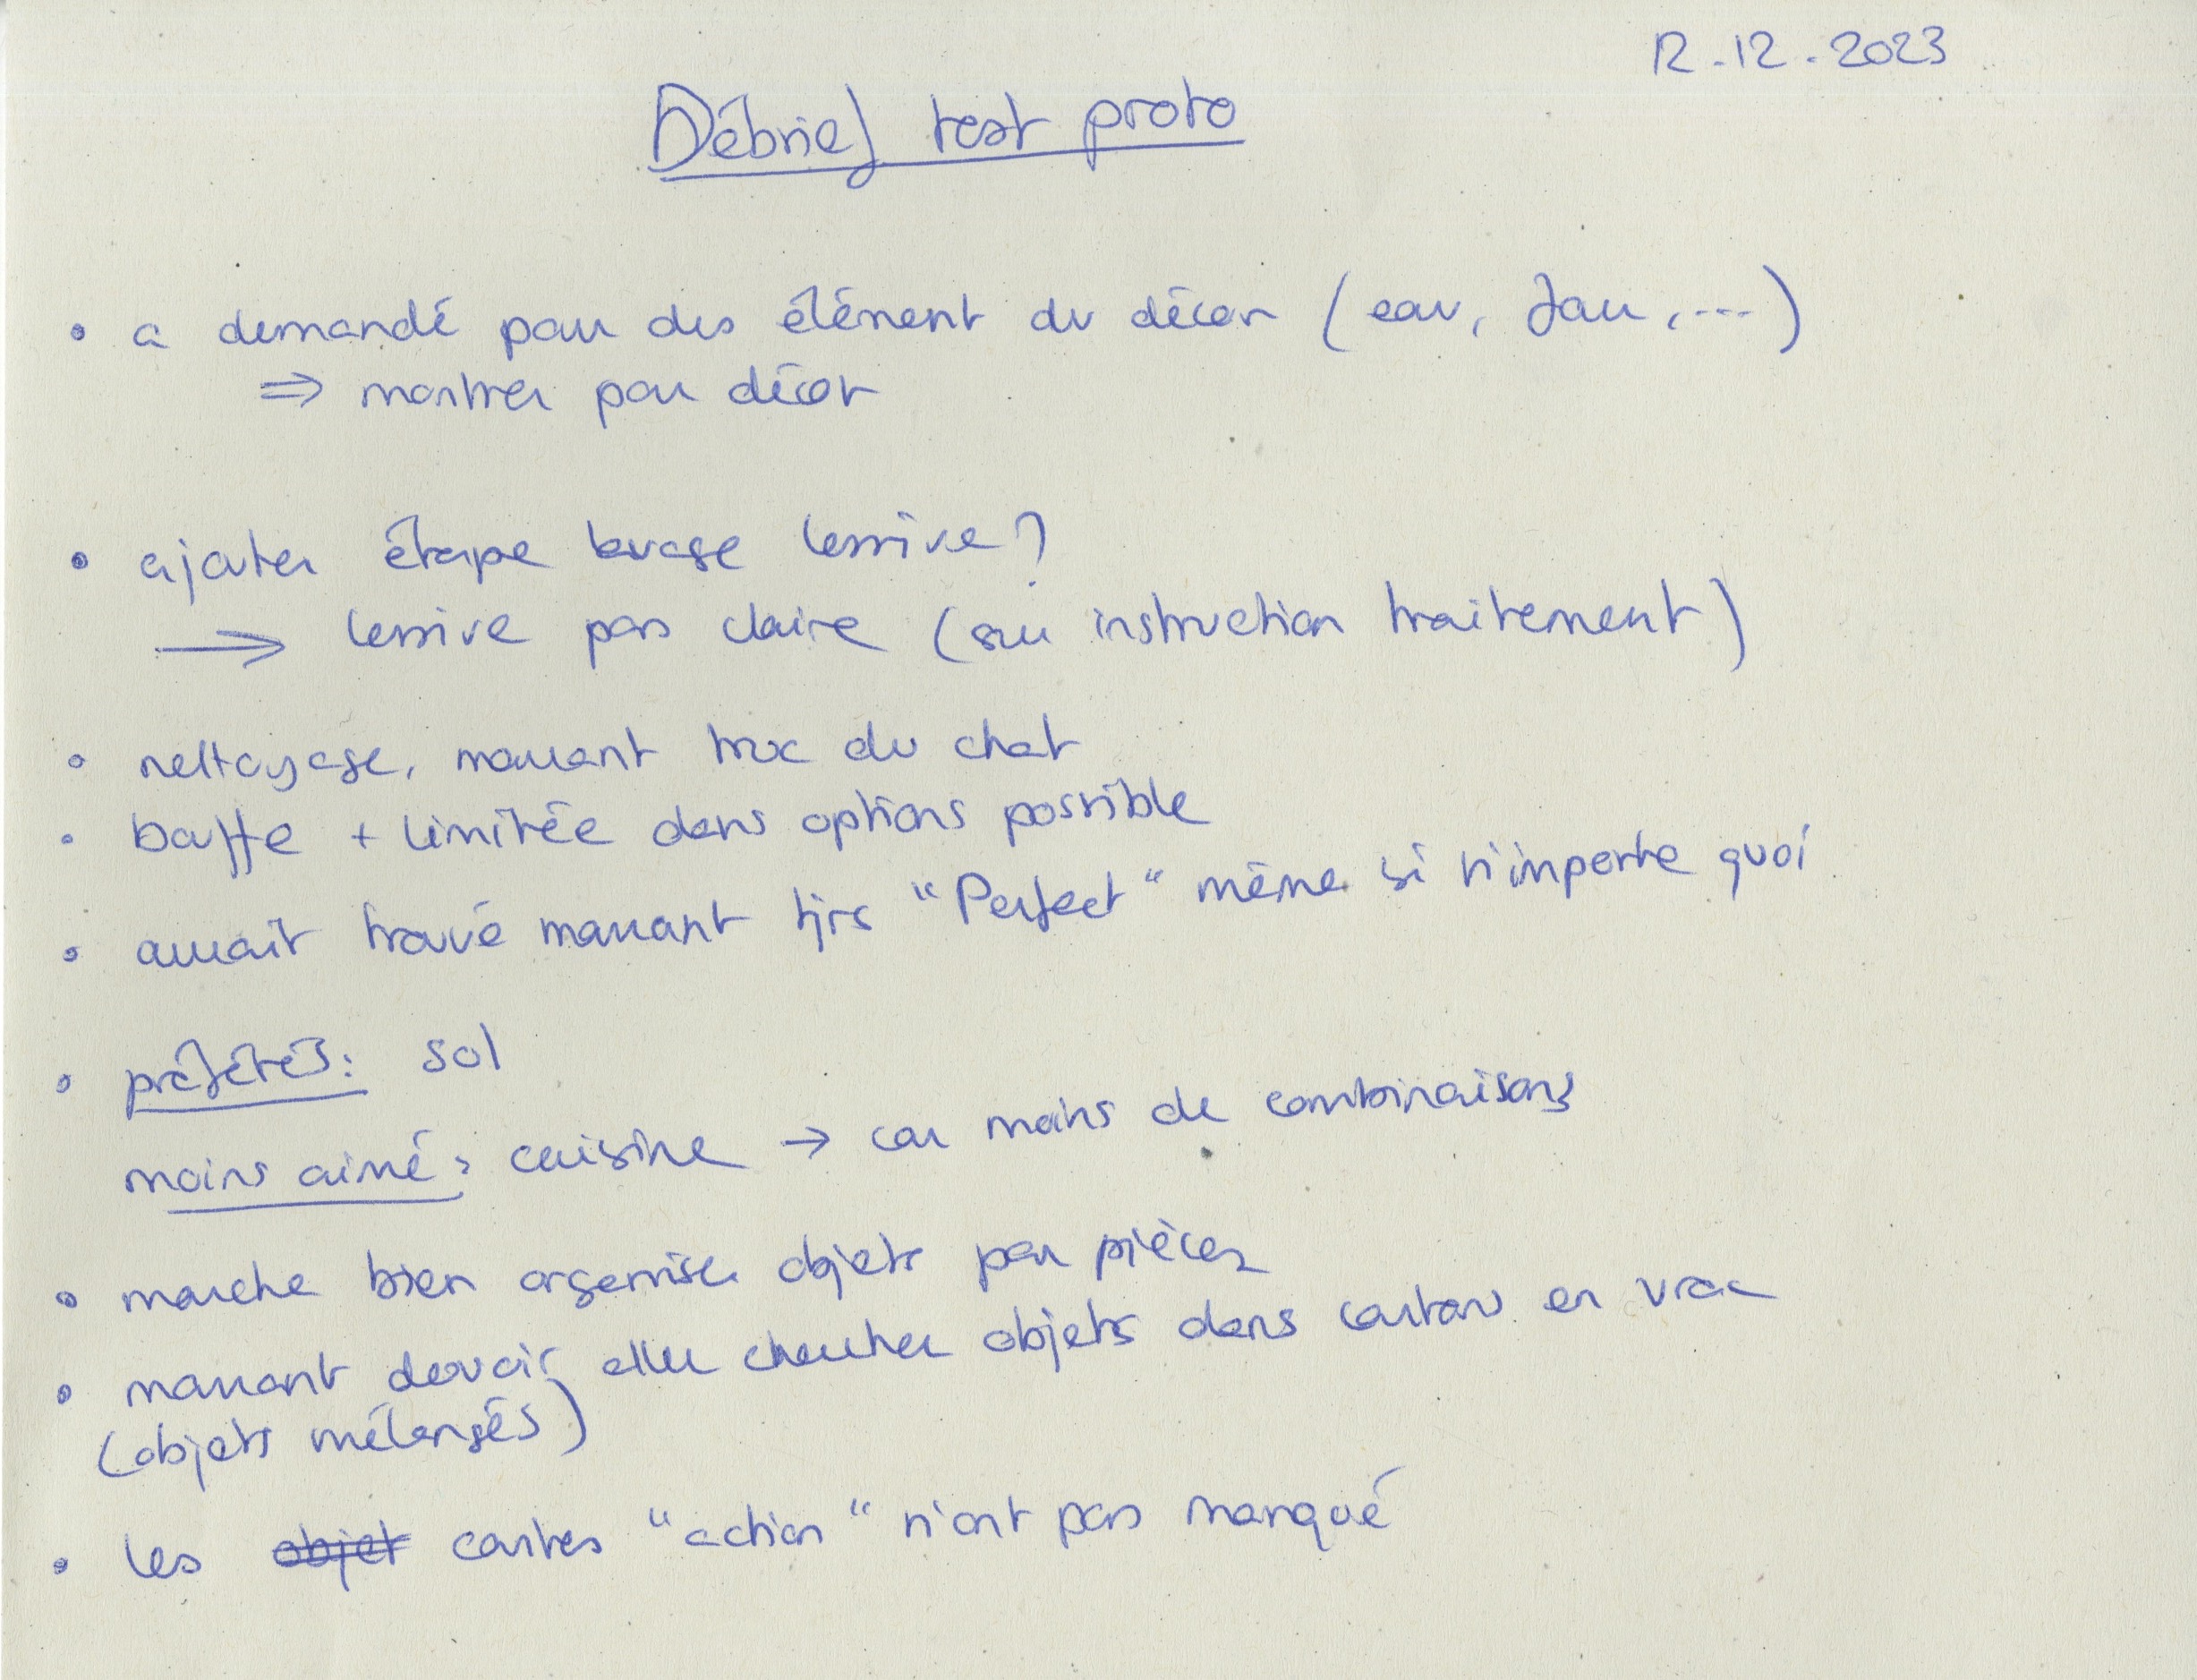 12-12-2023
Débrief test proto
• a demandé pour des élément du décor (eau, four, ...)
⇒ montrer par décor
• ajouter étape lavage lessive?
→ lessive pas claire (sur instruction traitement)
• nettoyage, marrant truc du chat
• bouffe + limitée dans options possible
• aurait trouvé marrant tjrs "Perfect" même si n'importe quoi
• préférés: sol
moins aimé: cuisine → car moins de combinaisons
• marche bien organiser objets par pièces
• marrant devoir aller chercher objets dans cartons en vrac
(objets mélangés)
• les objet cartes "action" n'ont pas manqué